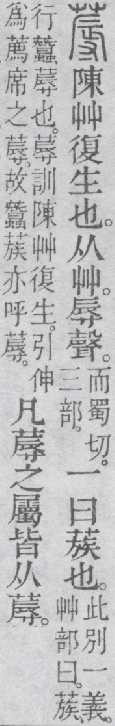 蓐陳艸復生也。从艸。辱聲。
而蜀切。
三部。
一曰蔟也。
此別一義。
艸部曰。蔟、
行蠶蓐也。蓐訓陳艸復生。引伸
爲薦席之蓐。故蠶蔟亦呼蓐。
凡蓐之屬皆从蓐。